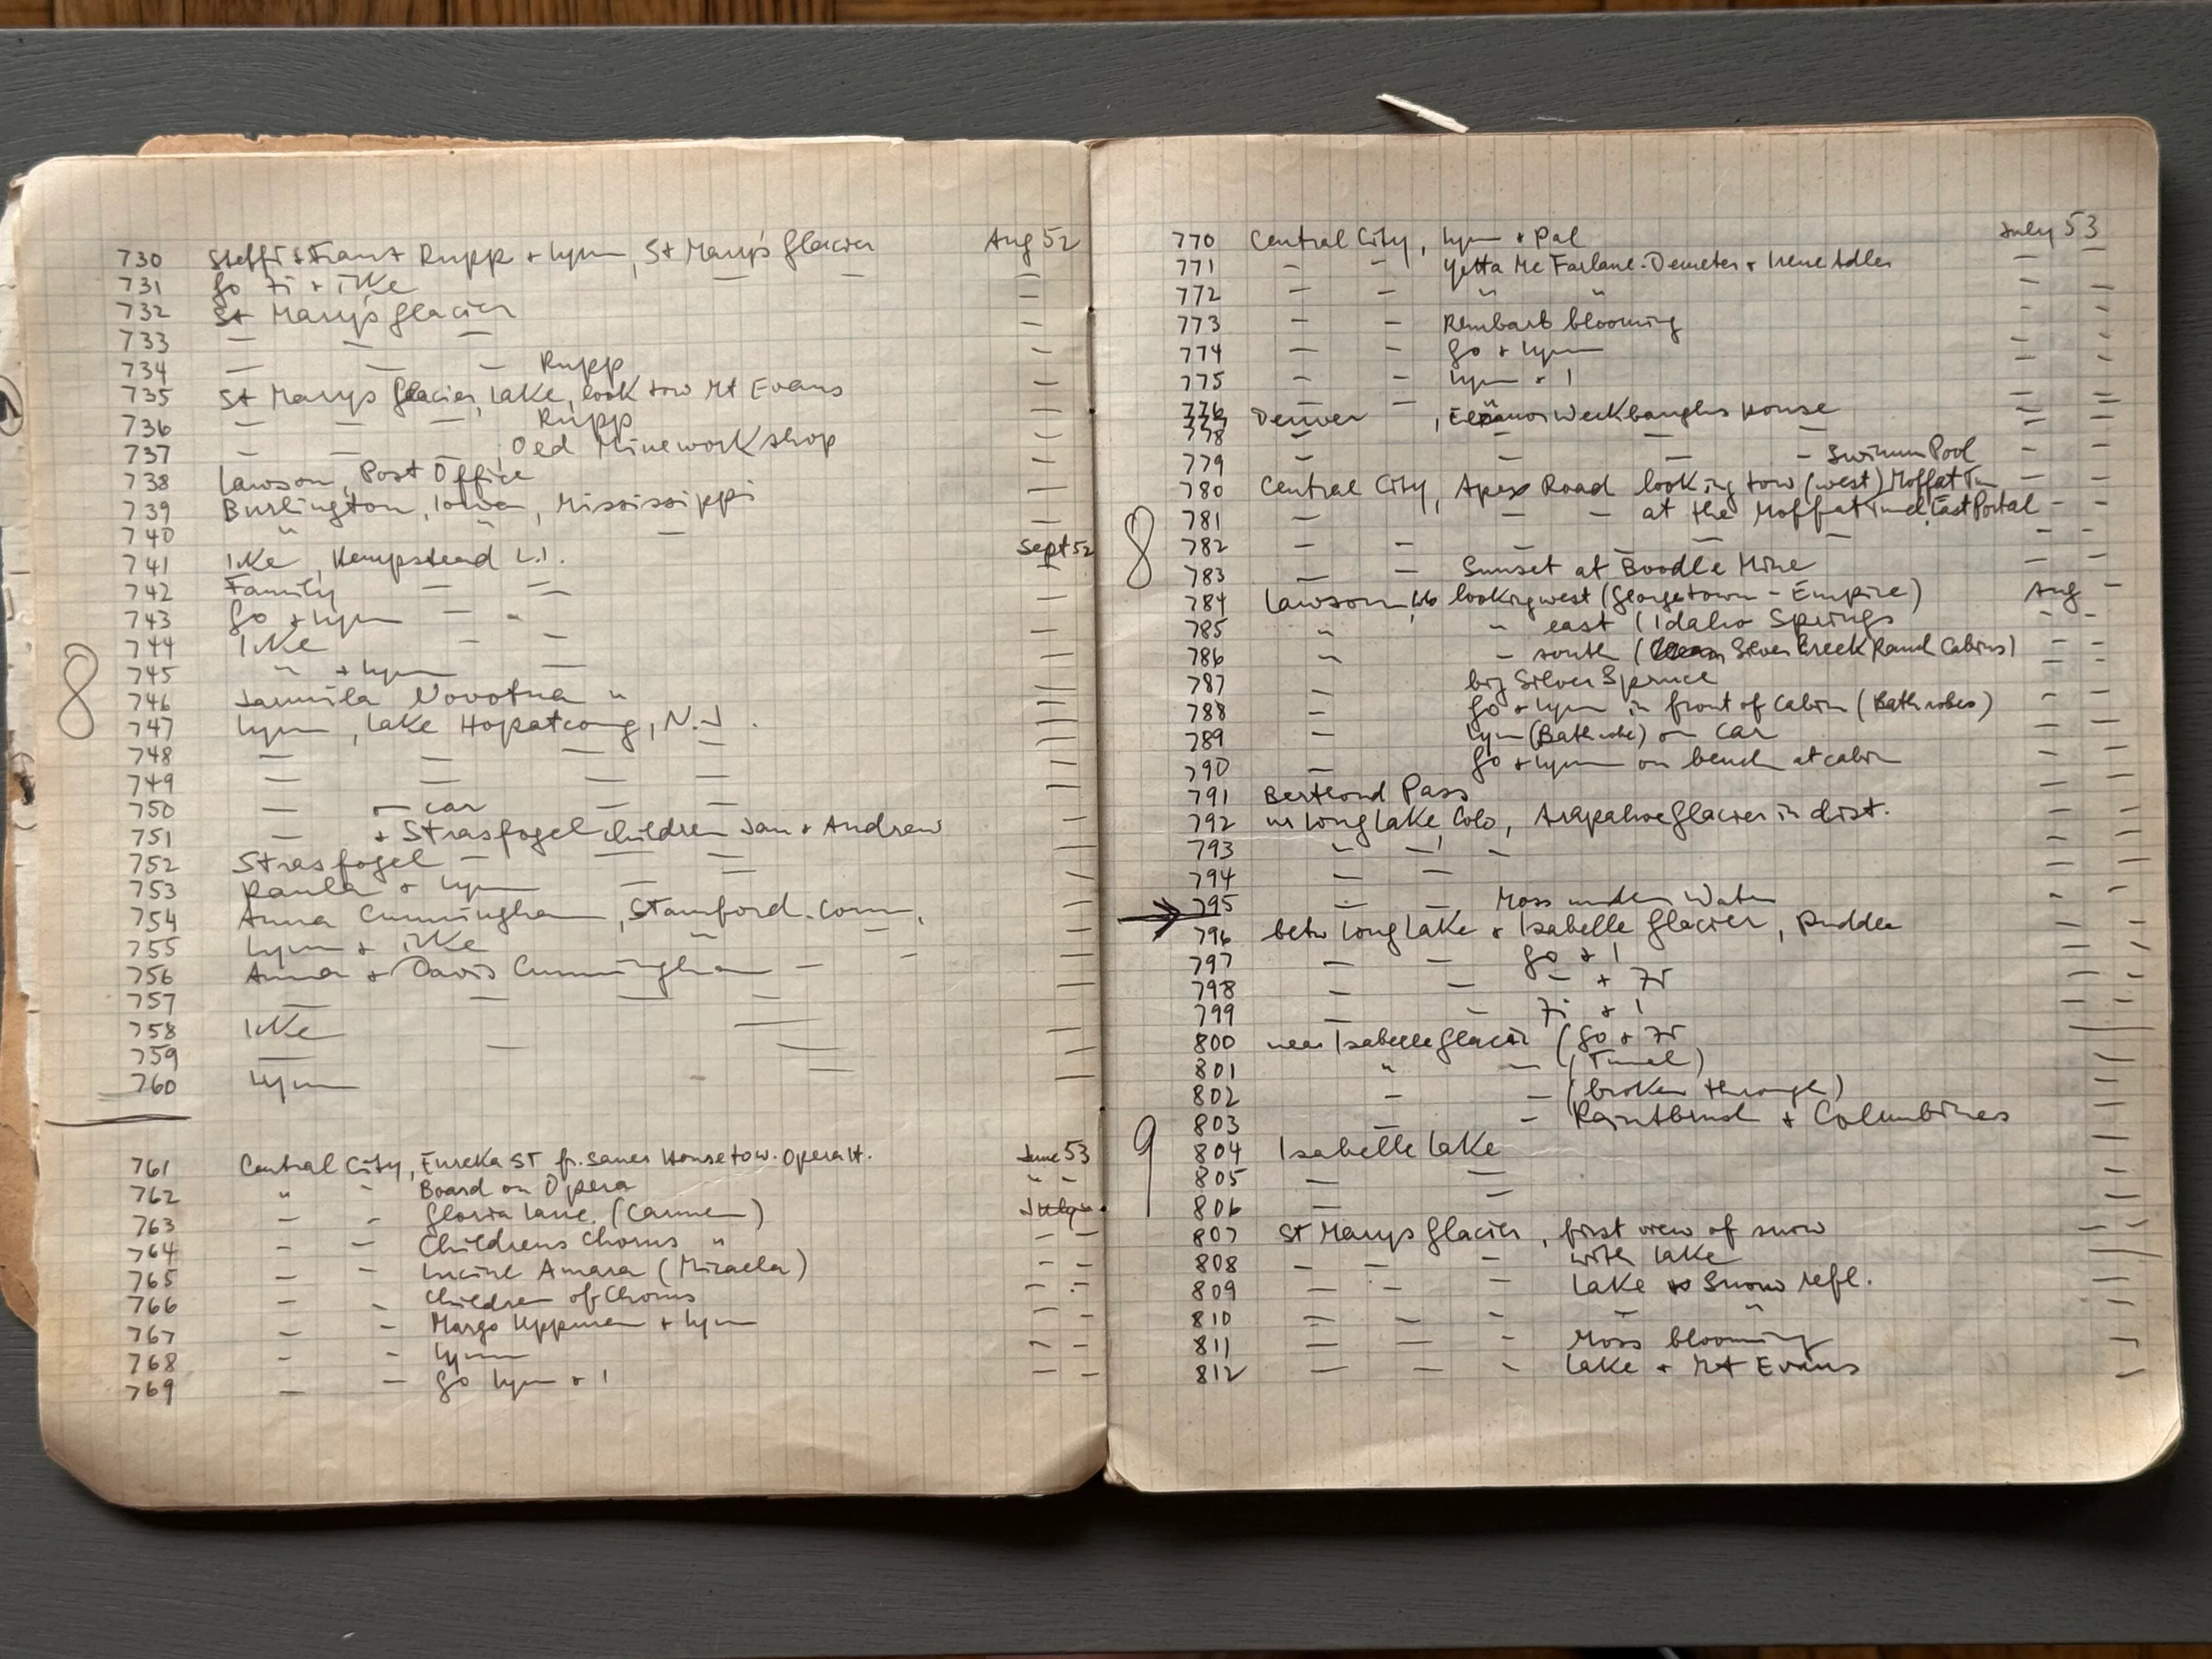 730 Steffi + Franz Rupp + Lynn, St Mary's Glacier Aug 52
731 Go Fi + Ike — — —
732 St Mary's Glacier —
733 — — — —
734 — — — Rupp —
735 St Marys Glacier, Lake, look tow Mt Evans —
736 — — — Rupp —
737 — — — , Old Mine workshop —
738 Lawson, Post Office —
739 Burlington, Iowa, Mississippi —
740 " " — —
741 Ike, Hempstead L.I. Sept 52
742 Family — — —
743 Go + Lynn — - —
744 Ike - — —
745 " + Lynn —
746 Jarmila Novotna " —
747 Lynn, Lake Hopatcong, N.J. —
748 — — — — —
749 — — — — —
750 — — car — — —
751 — + Strasfogel children Jan + Andrew —
752 Strasfogel — — — —
753 Paula + Lynn — — —
754 Anna Cunningham, Stamford. Conn, —
755 Lynn + Ike " — —
756 Anna + Davis Cunningham — - —
757 — — — — —
758 Ike — —
759 — — — —
760 Lynn — —
8
761 Central City, Eureka St fr. Sauer House tow. Opera H. June 53
762 " - Board on Opera " -
763 - - Gloria Lane (Carmen) July
764 - - Childrens Chorus " - -
765 - - Lucine Amara (Micaela) - -
766 - - Children of Chorus - -
767 - - Margo + Lynn - -
768 - - Lynn - -
769 - - Go Lynn + I - -
770 Central City, Lynn + Pal July 53
771 - - Yetta Mc Farlane-Demeter + Irene Adler - -
772 - - " " - -
773 - - blooming - -
774 - - Go + Lynn - -
775 - - Lynn + I - -
776 - - " - -
777 Denver, House - -
778 - — — — - -
779 - — — - Swimm Pool - -
780 Central City, Apex Road looking tow (west) Moffat Tun - -
781 — — - at the Moffat Tunnel, East Portal - -
782 — - — — — — - -
783 — - Sunset at Boodle Mine - -
784 Lawson, looking west (Georgetown - Empire) Aug -
785 " " east (Idaho Springs - -
786 " - south ( Silver Creek Ranch Cabins) - -
787 — big Silver Spruce - -
788 — Go + Lynn in front of Cabin (Bathrobes) - -
789 — Lynn (Bathrobe) on car - -
790 — Go + Lynn on bench at cabin - -
8
791 Berthoud Pass - -
792 nr Long Lake Colo, Arapahoe Glacier in dist. - -
793 - — - - -
794 — — - -
795 — — Moss under Water - -
796 betw Long Lake + Isabelle Glacier, Puddle - -
797 — — Go + I - -
798 — — — + Fi - -
799 — - Fi + I - -
800 near Isabelle Glacier (Go + Fi - -
801 " — (Tunnel) - -
802 — — (broken through) - -
803 — - Paintbrush + Columbines - -
804 Isabelle Lake - -
805 — — - -
806 — — - -
9
807 St Marys Glacier, first view of snow - -
808 — — - with lake - -
809 — — - Lake Snow refl. - -
810 — — - — " - -
811 — — - Moss blooming -
812 — — - Lake + Mt Evans -